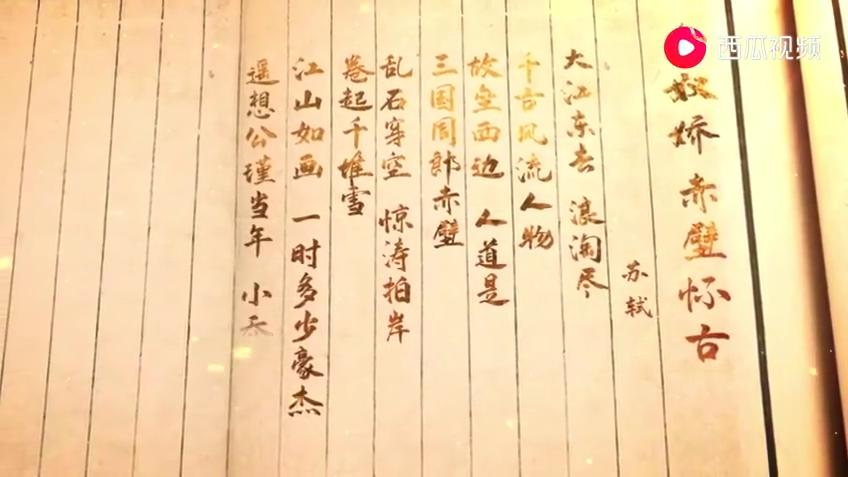 西瓜视频
奴娇 赤壁怀古
苏轼
大江东去 浪淘尽
千古风流人物
故垒西边 人道是
三国周郎赤壁
乱石穿空 惊涛拍岸
卷起千堆雪
江山如画 一时多少豪杰
遥想公瑾当年 小